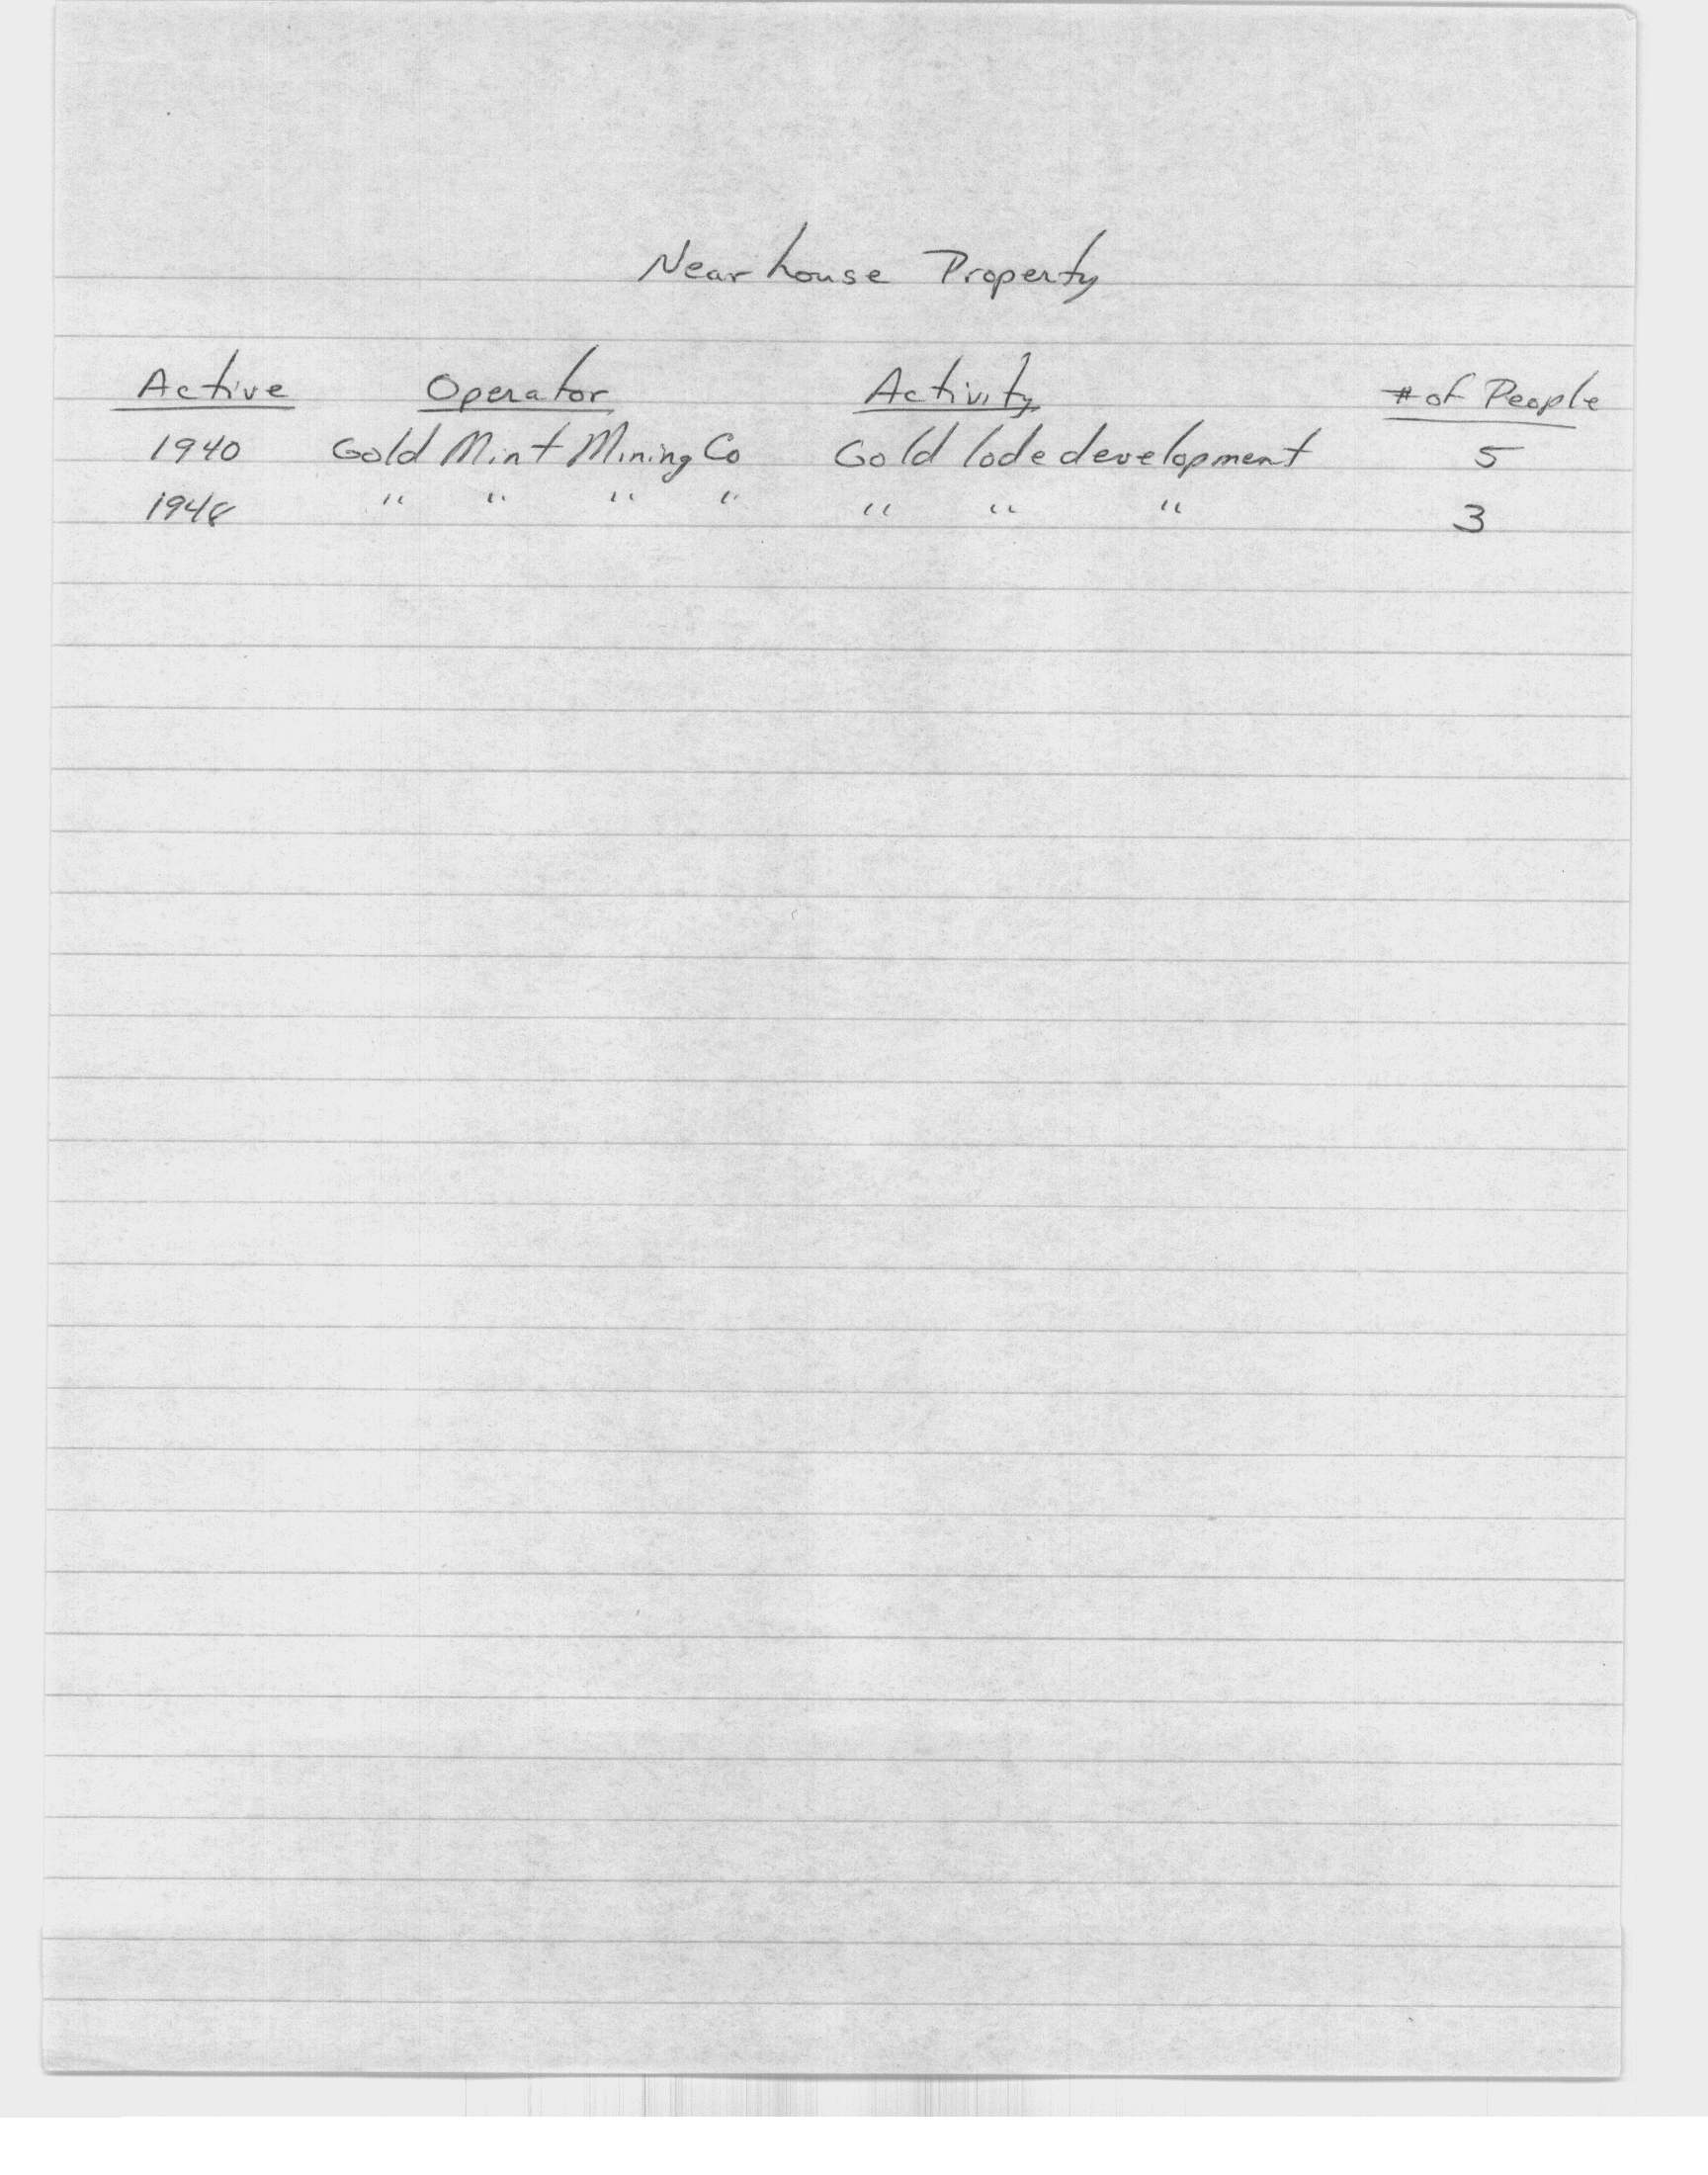 Nearhouse Property
Active Operator Activity # of People
1940 Gold Mint Mining Co Gold lode development 5
1948 " " " " " " " 3